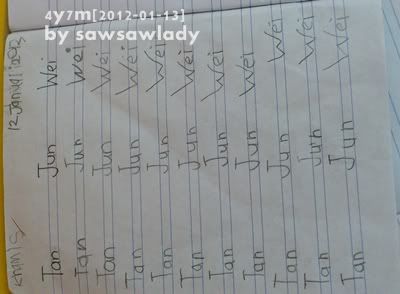 4y7m[2012-01-13]
by sawsawlady
Khamis 12 Januari
Tan Jun Wei
Tan Jun Wei
Tan Jun Wei
Tan Jun Wei
Tan Jun Wei
Tan Jun Wei
Tan Jun Wei
Tan Jun Wei
Tan Jun Wei
Tan Jun Wei
Tan Jun Wei